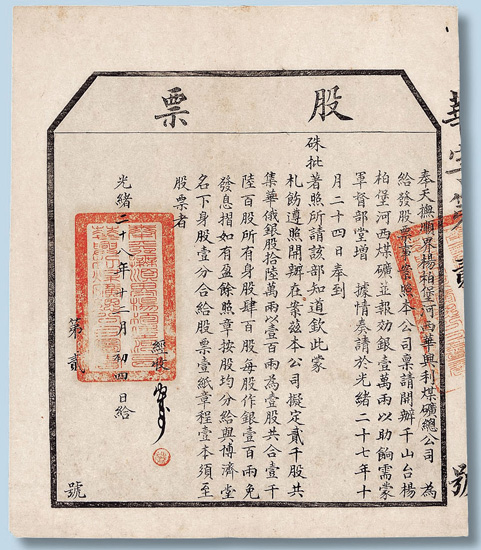 股票
奉天撫順界楊柏堡河西華興利煤礦總公司 為
給發股票事案照本公司稟請開辦千山台楊
柏堡河西煤礦並報効銀壹萬兩以助餉需蒙
軍督部堂增 據情奏請於光緒二十七年十
月二十四日奉到
硃批著照所請該部知道欽此蒙
札飭遵照開辦在案茲本公司擬定貳千股共
集華俄銀股拾陸萬兩以壹百兩為壹股共合壹千
陸百股所有身股肆百股每股作銀壹百兩免
發息摺如有盈餘照章按股均分給與博濟堂
名下身股壹分合給股票壹紙章程壹本須至
股票者
光緒二十八年十二月初四日給
經收
第貳 號